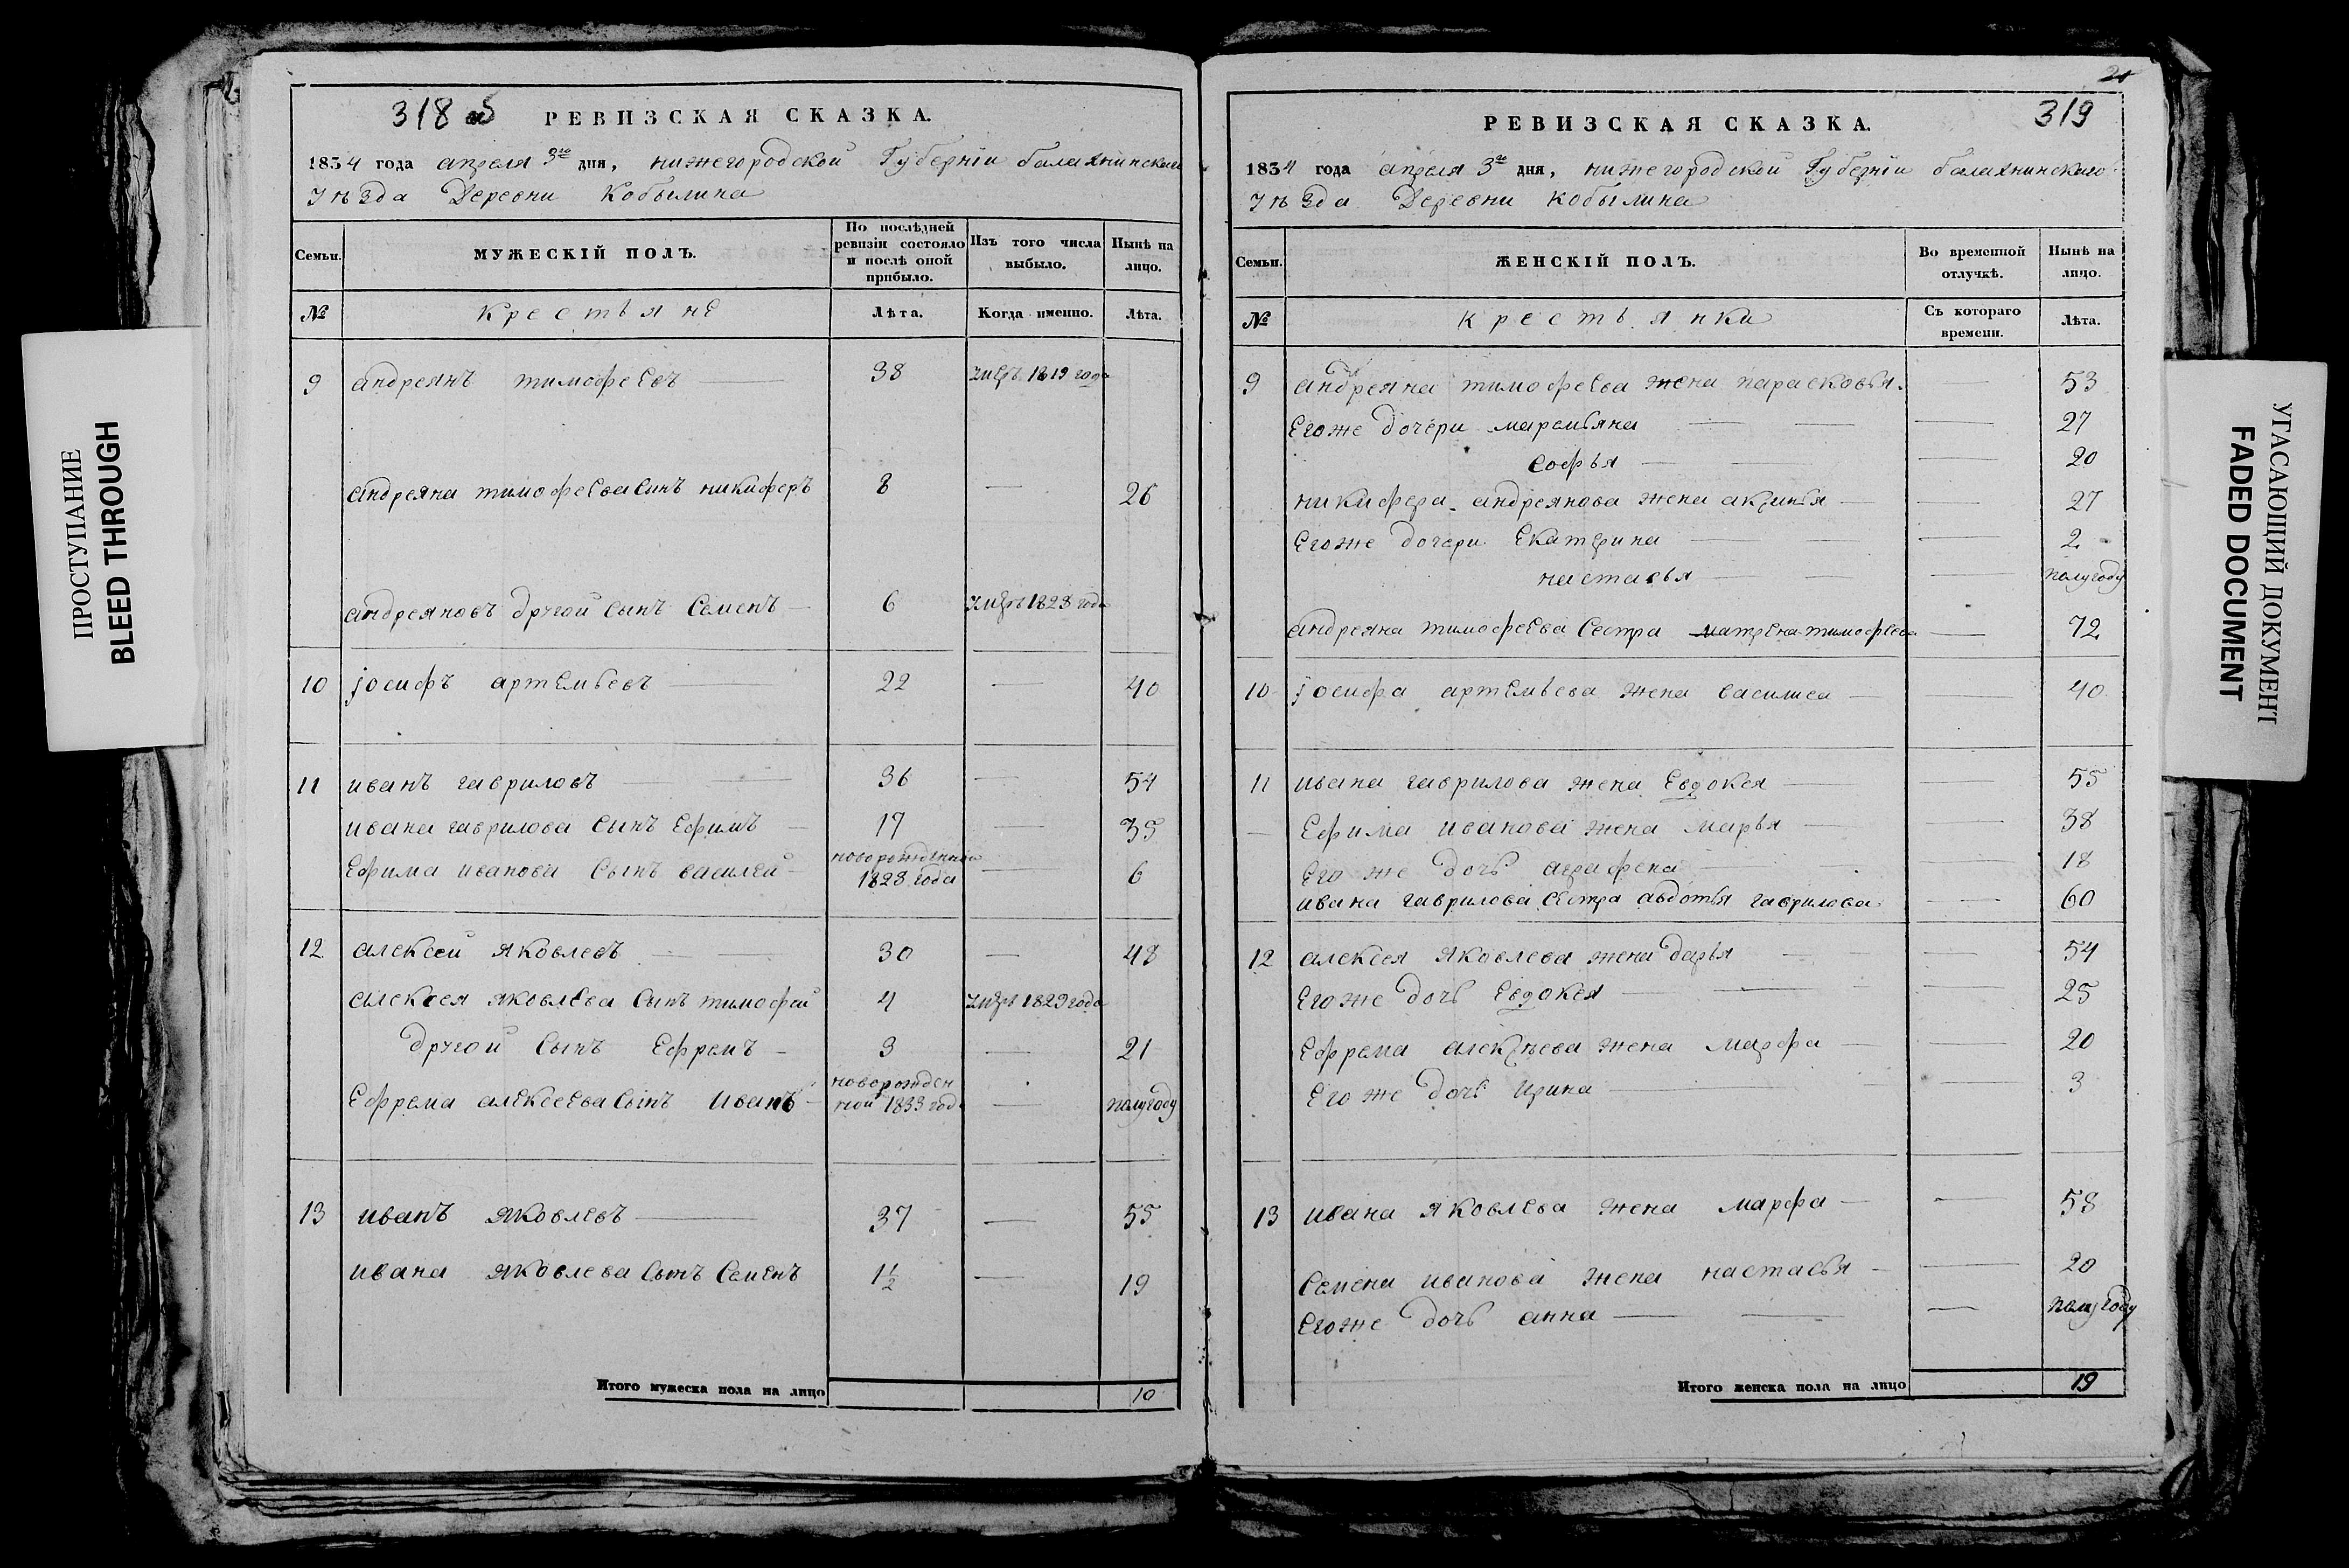 318 об РЕВИЗСКАЯ СКАЗКА.
1834 года апреля 3го дня, нижегородской Губернiи балахнинскаго
Уѣзда Деревни Кобылина
Семьи.
МУЖЕСКІЙ ПОЛЪ.
По послѣдней ревизіи состояло и послѣ оной прибыло.
Изъ того числа выбыло.
Нынѣ на лицо.
№ крестьяне Лѣта. Когда именно. Лѣта.
9 андреянъ тимофеевъ — 38 умеръ 1819 года
андреяна тимофеева сынъ никифоръ 8 — 26
андреяновъ другой сынъ Семенъ — 6 умеръ 1828 года
10 іосифъ артемьевъ — 22 — 40
11 иванъ гавриловъ — 36 — 54
ивана гаврилова сынъ Ефимъ — 17 — 35
Ефима иванова сынъ василей — новорожденной 1828 года — 6
12 алексей яковлевъ — 30 — 48
алексея яковлева сынъ тимофей 4 умеръ 1829 года
другой сынъ Ефремъ — 3 — 21
Ефрема алексеева сынъ иванъ — новорожден
ной 1833 года — полугоду
13 иванъ яковлевъ — 37 — 55
ивана яковлева сынъ Семенъ 1½ — 19
Итого мужеска пола на лицо 10
21
РЕВИЗСКАЯ СКАЗКА. 319
1834 года апреля 3го дня, нижегородской Губернiи балахнинскаго
Уѣзда Деревни кобылина
Семьи.
ЖЕНСКІЙ ПОЛЪ.
Во временной отлучкѣ.
Нынѣ на лицо.
№ крестьянки Съ котораго времени. Лѣта.
9 андреяна тимофеева жена парасковья. — 53
Егоже дочери маремьяна — — — 27
софья — — — 20
никифора андреянова жена акулина — — 27
Егоже дочери Екатерина — — — 2
настасья — — — полугоду
андреяна тимофеева сестра матрена тимофеева — 72
10 іосифа артемьева жена василиса — — 40
11 ивана гаврилова жена Евдокея — — 55
— Ефима иванова жена марья — — 38
Его же дочь аграфена — — 18
ивана гаврилова сестра авдотья гаврилова — 60
12 алексея яковлева жена дарья — — 54
Егоже дочь Евдокея — — — 25
Ефрема алексѣева жена марфа — — 20
Его же дочь ирина — — 3
13 ивана яковлева жена марфа — — 58
Семена иванова жена настасья — — 20
Егоже дочь анна — — — полугоду
Итого женска пола на лицо 19
ПРОСТУПАНИЕ
BLEED THROUGH
УГАСАЮЩИЙ ДОКУМЕНТ
FADED DOCUMENT